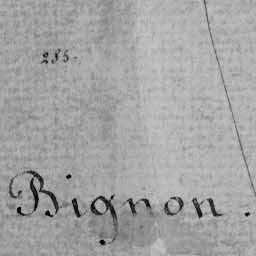 285.
Bignon.